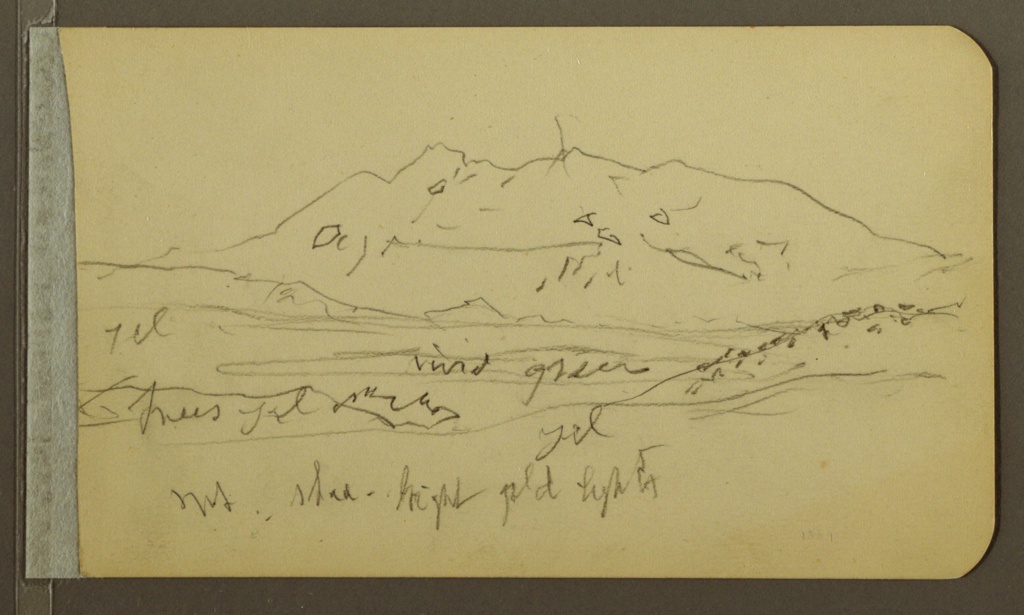 yel
vivid green
trees yel
yel
bright gold light